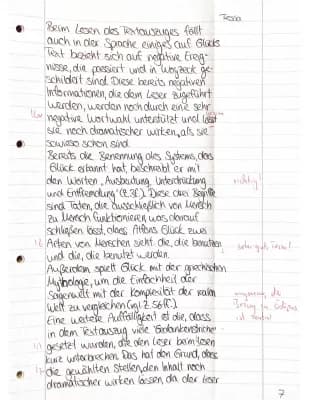 Tessa
Beim Lesen des Textauszuges fällt
auch in der Sprache einiges auf Glücks
Text bezieht sich auf negative Ereig-
nisse, die passiert und in Woyzeck ge-
schildert sind. Diese bereits negativen
Informationen, die dem Leser zugeführt
werden, werden noch durch eine sehr
negative Wortwahl unterstützt und lässt
sie noch dramatischer wirken, als sie
sowieso schon sind.
Bereits die Benennung des Systems, das
Glück erkannt hat, beschreibt er mit
den Worten „Ausbeutung, Unterdrückung
und Entfremdung" (Z.3f.). Diese drei Begriffe
richtig!
sind Taten, die ausschließlich von Mensch
zu Mensch funktionieren, was darauf
schließen lässt, dass Alfons Glück zwei
Arten von Menschen sieht: die, die benutzen
sehr gut, Tessa!
und die, die benutzt werden.
Außerdem spielt Glück mit der griechischen
Mythologie, um die Einfachheit der
Sagenwelt mit der Komplexität der realen
Welt zu vergleichen (vgl. Z. 56ff.).
Eine weitere Auffälligkeit ist die, dass
in dem Textauszug viele Gedankenstriche
gesetzt wurden, die den Leser beim lesen
kurz unterbrechen. Das hat den Grund, dass
die gewählten Stellen, den Inhalt noch
dramatischer wirken lassen, da der Leser
7